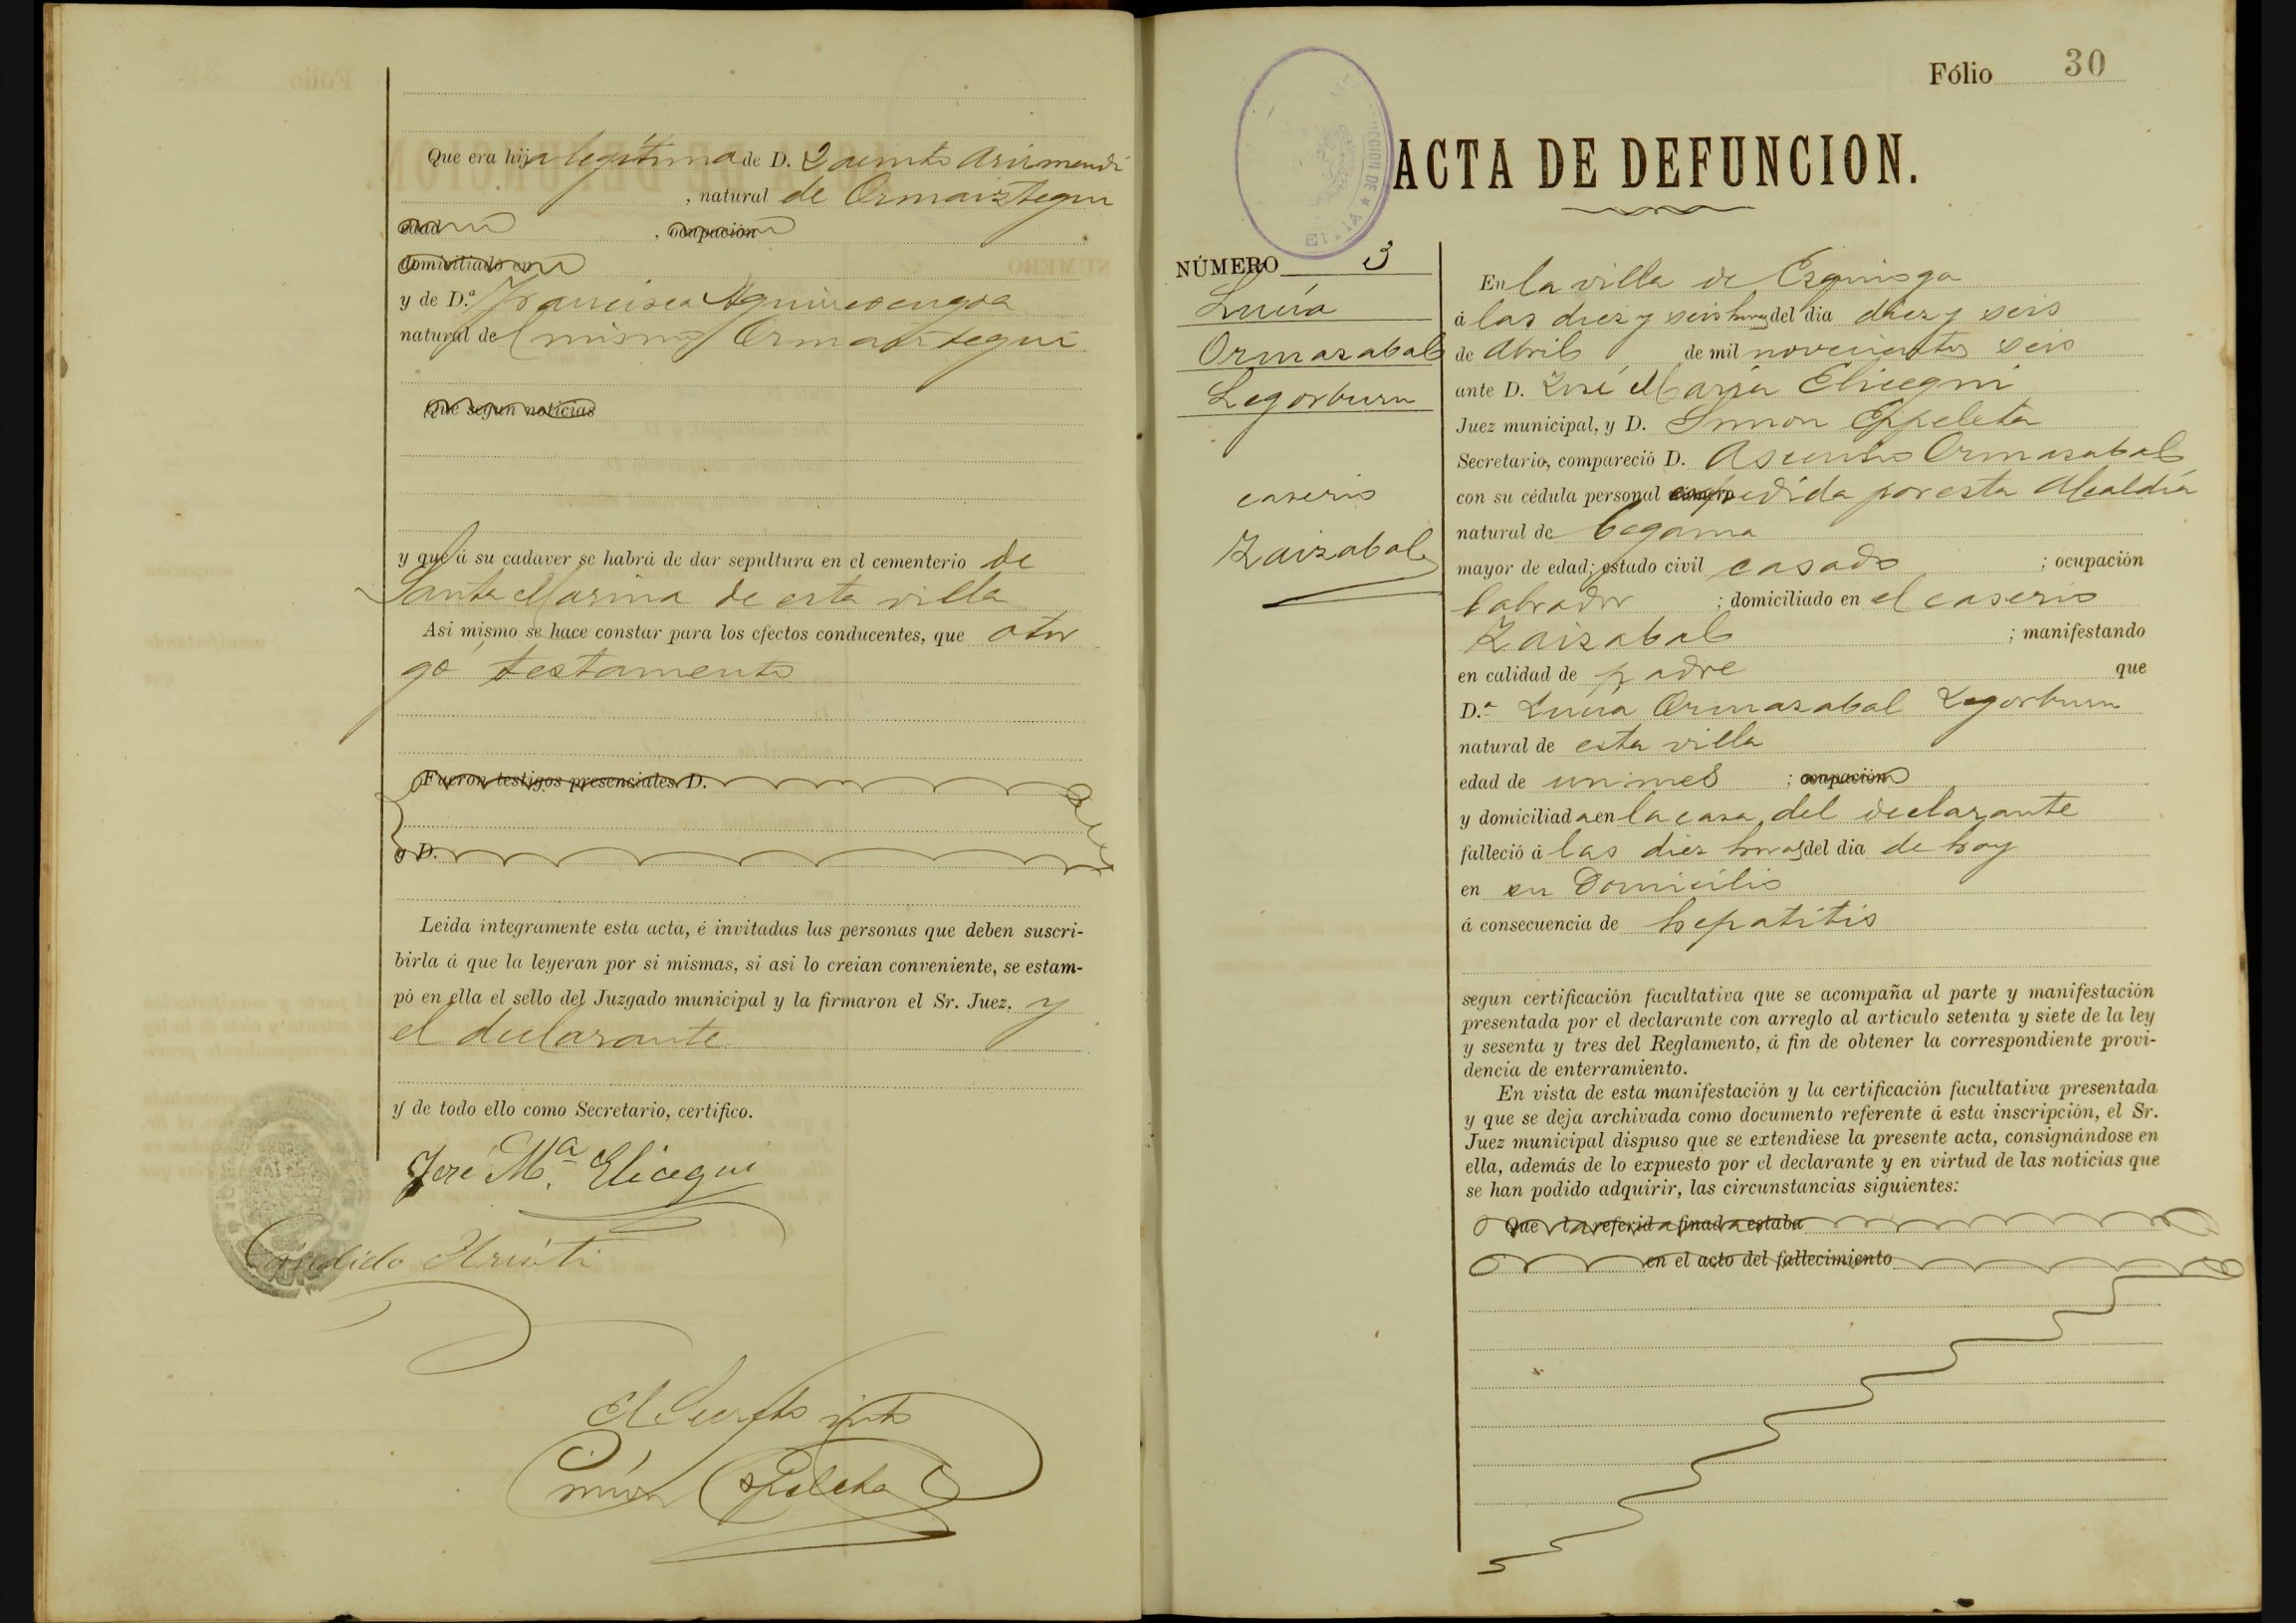 Que era hija legítima de D. Jacinto Arizmendi
, natural de Ormaiztegui
edad , ocupación
domiciliado en
y de D.ª Francisca Aguirreurgoa
natural de (mismo) Ormaiztegui
Que segun noticias
y que á su cadaver se habrá de dar sepultura en el cementerio de
Santa Marina de esta villa
Asi mismo se hace constar para los efectos conducentes, que otor
gó testamento
Fueron testigos presenciales D.
y D.
Leida integramente esta acta, é invitadas las personas que deben suscri-
birla á que la leyeran por si mismas, si asi lo creian conveniente, se estam-
pó en ella el sello del Juzgado municipal y la firmaron el Sr. Juez. y
el declarante
y de todo ello como Secretario, certifico.
José Mª Elicegui
Cándido
El Secretº intº
Simón Ezpeleta
Fólio 30
ACTA DE DEFUNCION.
NÚMERO 3
Lucía
Ormazabal
Legorburu
caserio
Zaizabal
En la villa de Ezquioga
á las diez y seis horas del dia diez y seis
de Abril de mil novecientos seis
ante D. José María Elicegui
Juez municipal, y D. Simon Ezpeleta
Secretario, compareció D. Asensio Ormazabal
con su cédula personal expedida por esta Alcaldía
natural de Cegama
mayor de edad; estado civil casado ; ocupación
labrador ; domiciliado en el caserio
Zaizabal ; manifestando
en calidad de padre que
D.ª Lucía Ormazabal Legorburu
natural de esta villa
edad de un mes ; ocupación
y domiciliada en la casa del declarante
falleció á las diez horas del dia de hoy
en su Domicilio
á consecuencia de hepatitis
segun certificación facultativa que se acompaña al parte y manifestación
presentada por el declarante con arreglo al artículo setenta y siete de la ley
y sesenta y tres del Reglamento, á fin de obtener la correspondiente provi-
dencia de enterramiento.
En vista de esta manifestación y la certificación facultativa presentada
y que se deja archivada como documento referente á esta inscripción, el Sr.
Juez municipal dispuso que se extendiese la presente acta, consignándose en
ella, además de lo expuesto por el declarante y en virtud de las noticias que
se han podido adquirir, las circunstancias siguientes:
Que la referida finada estaba
en el acto del fallecimiento